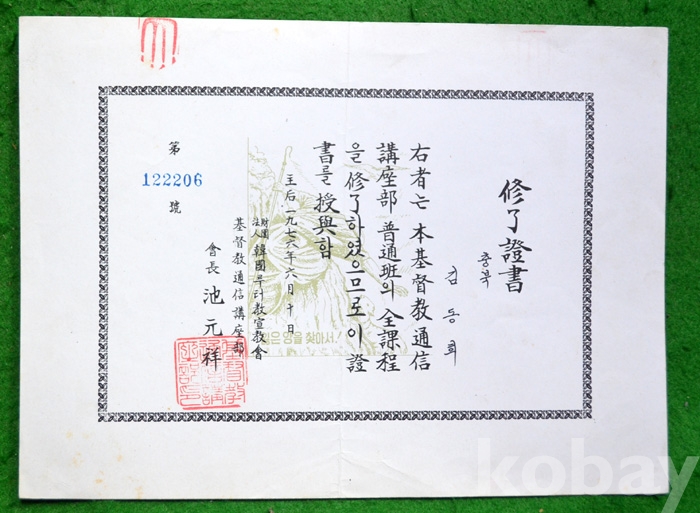 修了證書
충북
김동회
右者는 本基督敎通信
講座部 普通班의 全課程
을 修了하였으므로 이 證
書를 授與함
主后一九七六年六月十日
財團
法人 韓國루터敎宣敎會
基督敎通信講座部
會長 池元祥
제
122206
號
은 양을 찾아서!
kobay